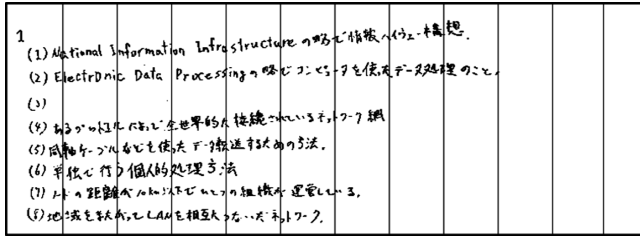 1
(1) National Information Infrastructureの略で情報ハイウェー構想.
(2) Electronic Data Processingの略でコンピュータを使ったデータ処理のこと.
(3)
(4) あるプロトコルによって全世界的に接続されているネットワーク網
(5) 同軸ケーブルなどを使ったデータ転送するための方法.
(6) 単独で行う個人的処理方法
(7) ノードの距離が10km以下でひとつの組織が運営している.
(8) 地域をまたがってLANを相互につないだネットワーク.